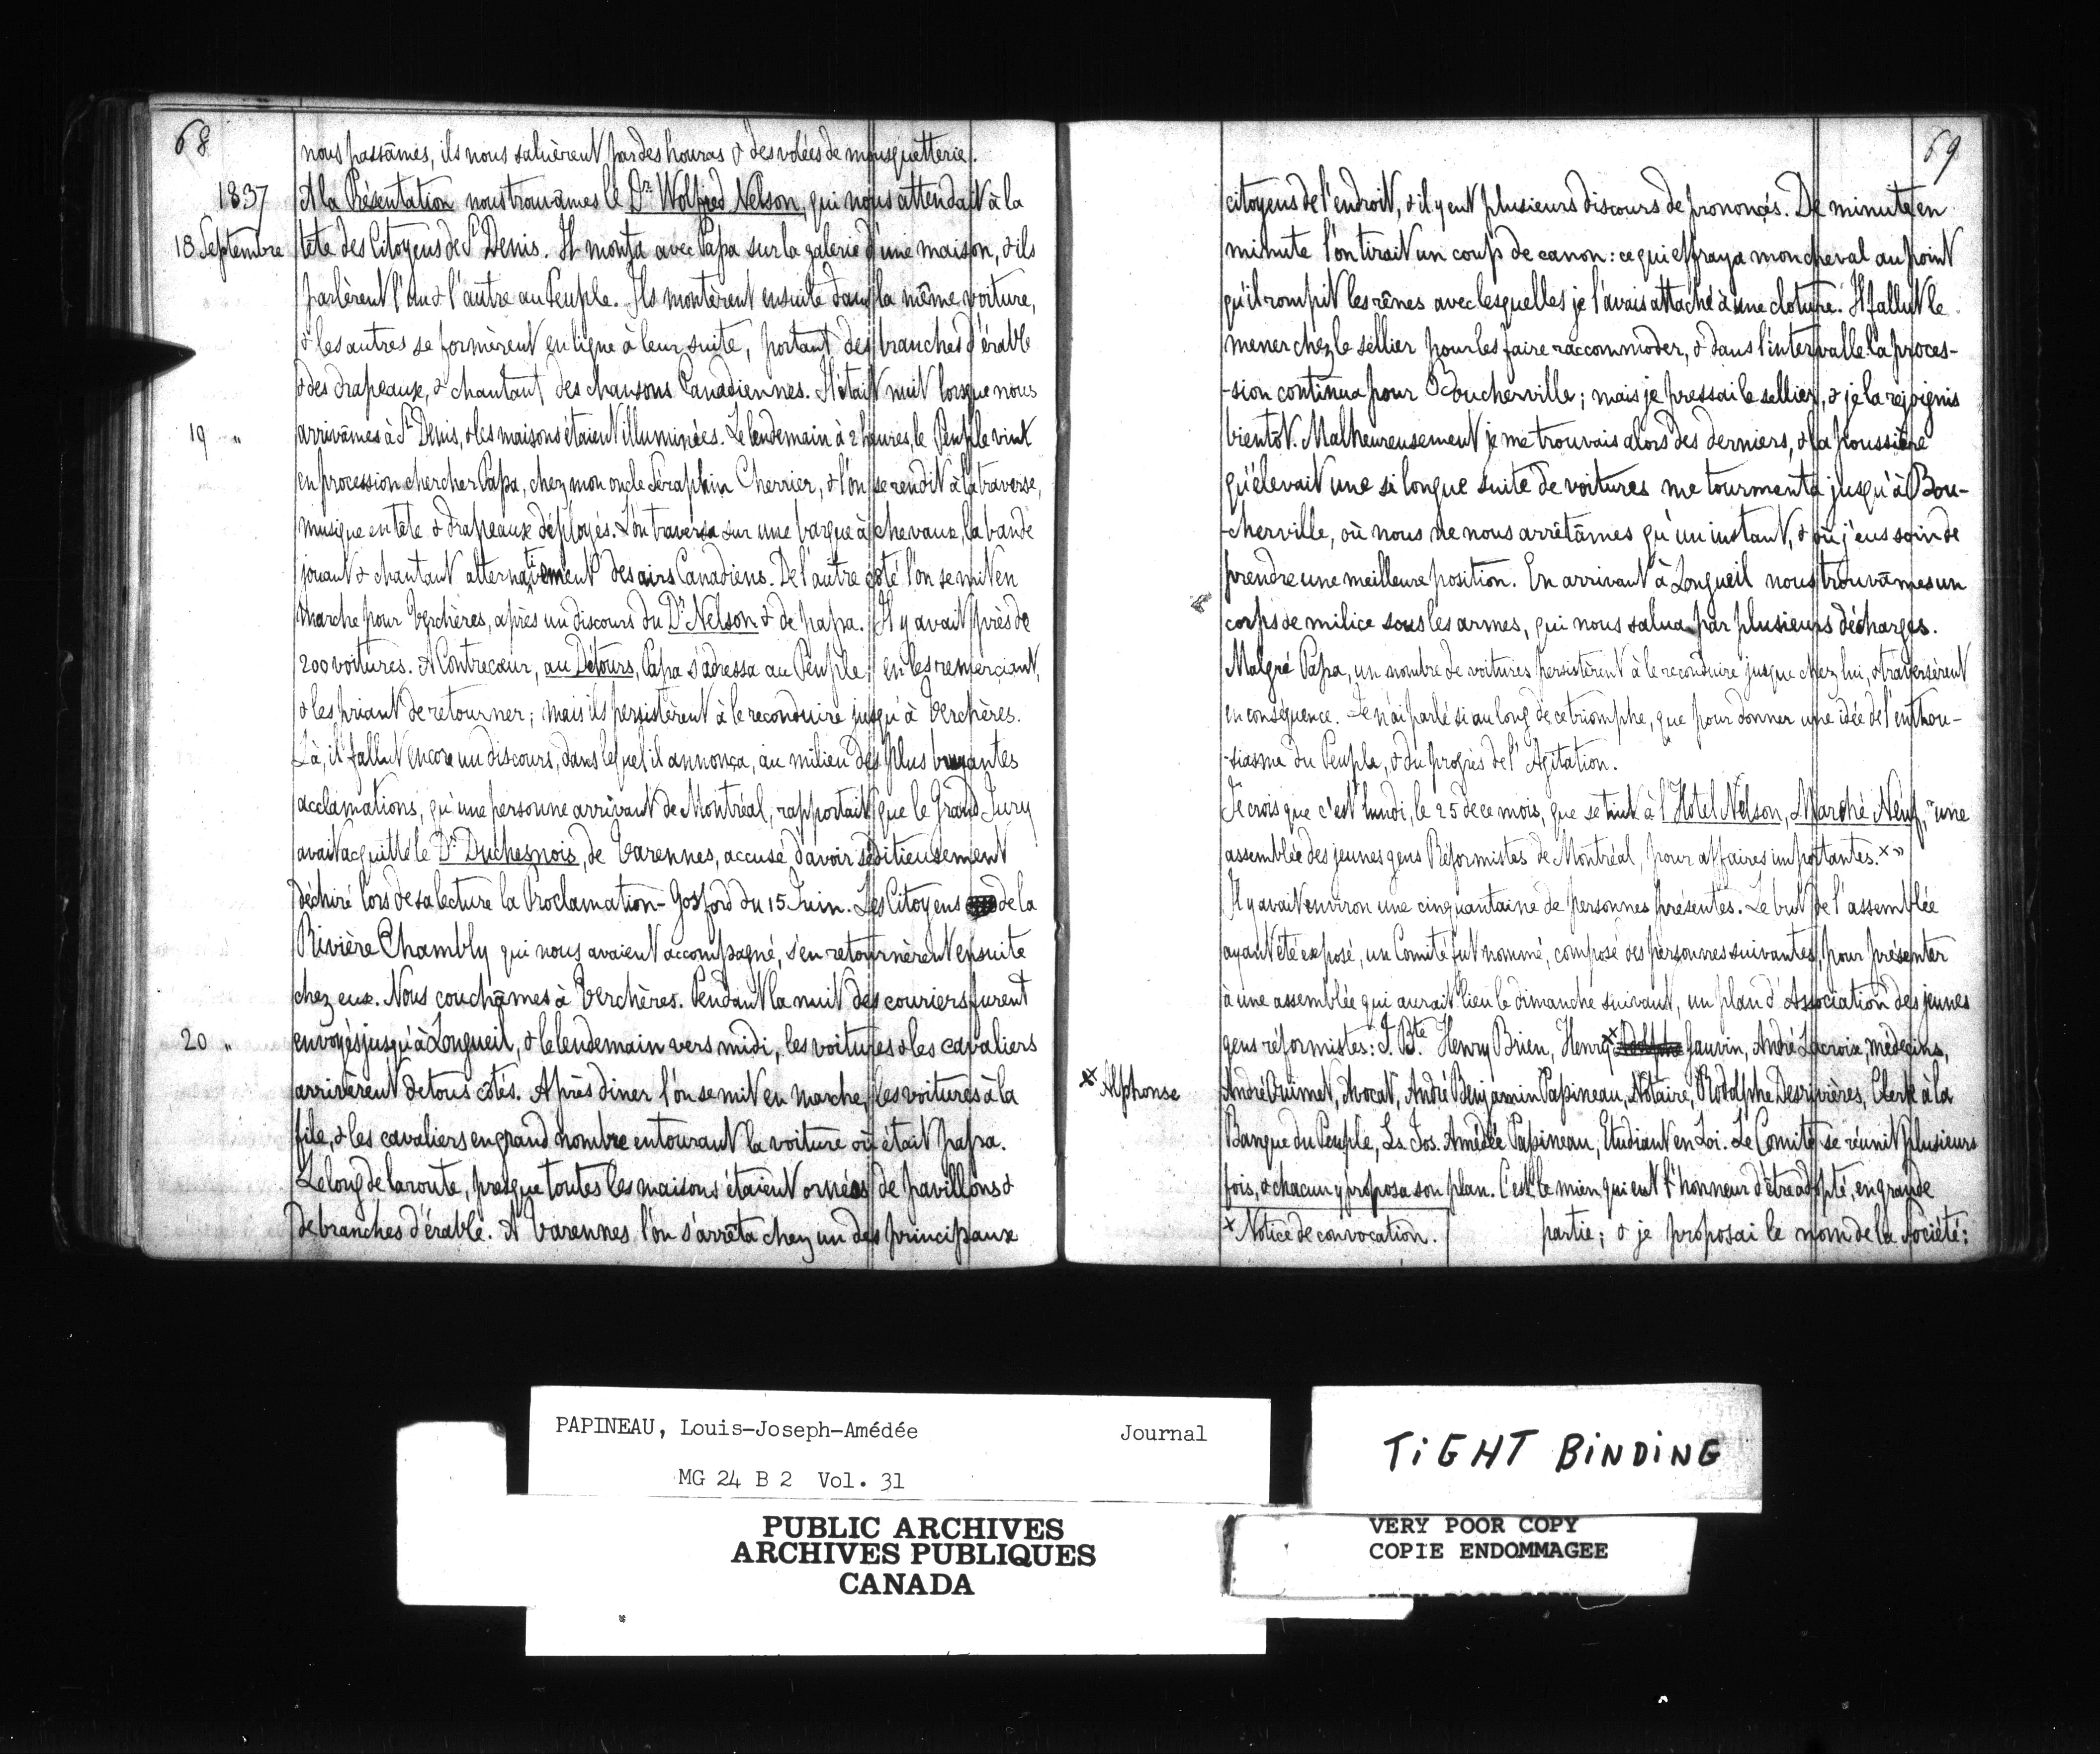 68
nous passâmes, ils nous saluèrent par des houras & des volées de mousquetterie.
1837 A la Présentation nous trouvâmes le Dr. Wolfred Nelson, qui nous attendait à la
18 Septembre tête des Citoyens de St Denis. Il monta avec Papa sur la galerie d'une maison, & ils
parlèrent l'un & l'autre au Peuple. Ils montèrent ensuite dans la même voiture,
& les autres se formèrent en ligne à leur suite, portant des branches d'érable
& des drapeaux, & chantant des chansons Canadiennes. Il était nuit lorsque nous
19 " arrivâmes à St Denis, & les maisons étaient illuminées. Le lendemain à 2 heures, le Peuple vint
en procession chercher Papa, chez mon oncle Séraphin Cherrier, & l'on se rendit à la traverse,
musique en tête & drapeaux déployés. L'on traversa sur une barque à chevaux, la bande
jouant & chantant alternativement des airs Canadiens. De l'autre côté l'on se mit en
marche pour Verchères, après un discours du Dr Nelson & de papa. Il y avait près de
200 voitures. A Contrecœur, au Détours, Papa s'adressa au Peuple; en les remerciant,
& les priant de retourner; mais ils persistèrent à le reconduire jusqu'à Verchères.
Là, il fallut encore un discours, dans lequel il annonça, au milieu des plus bruyantes
acclamations, qu'une personne arrivant de Montréal, rapportait que le Grand Jury
avait acquitté le Dr Duchesnois, de Varennes, accusé d'avoir séditieusement
déchiré lors de sa lecture la Proclamation-Gosford du 15 Juin. Les Citoyens de la
Rivière Chambly qui nous avaient accompagné, s'en retournèrent ensuite
chez eux. Nous couchâmes à Verchères. Pendant la nuit des couriers furent
20 " envoyés jusqu'à Longueil, & le lendemain vers midi, les voitures & les cavaliers
arrivèrent de tous côtés. Après diner l'on se mit en marche, les voitures à la
file, & les cavaliers en grand nombre entourant la voiture où était papa.
Le long de la route, presque toutes les maisons étaient ornées de pavillons &
de branches d'érable. A Varennes l'on s'arrêta chez un des principaux
69
citoyens de l'endroit, & il y eut plusieurs discours de prononçés. De minute en
minute l'on tirait un coup de canon: ce qui effraya mon cheval au point
qu'il rompit les rênes avec lesquelles je l'avais attaché à une cloture. Il fallut le
mener chez le sellier pour les faire raccommoder, & dans l'intervalle la proces-
-sion continua pour Boucherville; mais je pressai le sellier, & je la rejoignis
bientôt. Malheureusement je me trouvais alors des derniers, & la poussière
qu'élevait une si longue suite de voitures me tourmenta jusqu'à Bou-
-cherville, où nous ne nous arrêtâmes qu'un instant, & où j'eus soin de
prendre une meilleure position. En arrivant à Longueil nous trouvâmes un
corps de milice sous les armes, qui nous salua par plusieurs décharges.
Malgré Papa, un nombre de voitures persistèrent à le reconduire jusque chez lui, & traversèrent
en conséquence. Je n'ai parlé si au long de ce triomphe, que pour donner une idée de l'enthou-
-siasme du Peuple, & du progrès de l'Agitation.
Je crois que c'est lundi, le 25 de ce mois, que se tint à l'Hotel Nelson, Marché Neuf, "une
assemblée des jeunes gens Réformistes de Montréal, pour affaires importantes. x"
Il y avait environ une cinquantaine de personnes présentes. Le but de l'assemblée
ayant été exposé, un Comité fut nommé, composé des personnes suivantes, pour présenter
à une assemblée qui aurait lieu le dimanche suivant, un plan d'Association des jeunes
gens réformistes: J. Bte. Henry Brien, Henry x Gauvin, André Lacroix, médecins,
x Alphonse
André Ouimet, Avocat, André Benjamin Papineau, Notaire, Rodolphe Desrivières, Clerk à la
Banque du Peuple, Ls. Jos. Amédée Papineau, Etudiant en Loi. Le Comité se réunit plusieurs
fois, & chacun y proposa son plan. C'est le mien qui eut l'honneur d'être adopté, en grande
x Notice de convocation. partie; & je proposai le nom de la Société:
PAPINEAU, Louis-Joseph-Amédée Journal
MG 24 B 2 Vol. 31
PUBLIC ARCHIVES
ARCHIVES PUBLIQUES
CANADA
TIGHT BINDING
VERY POOR COPY
COPIE ENDOMMAGEE